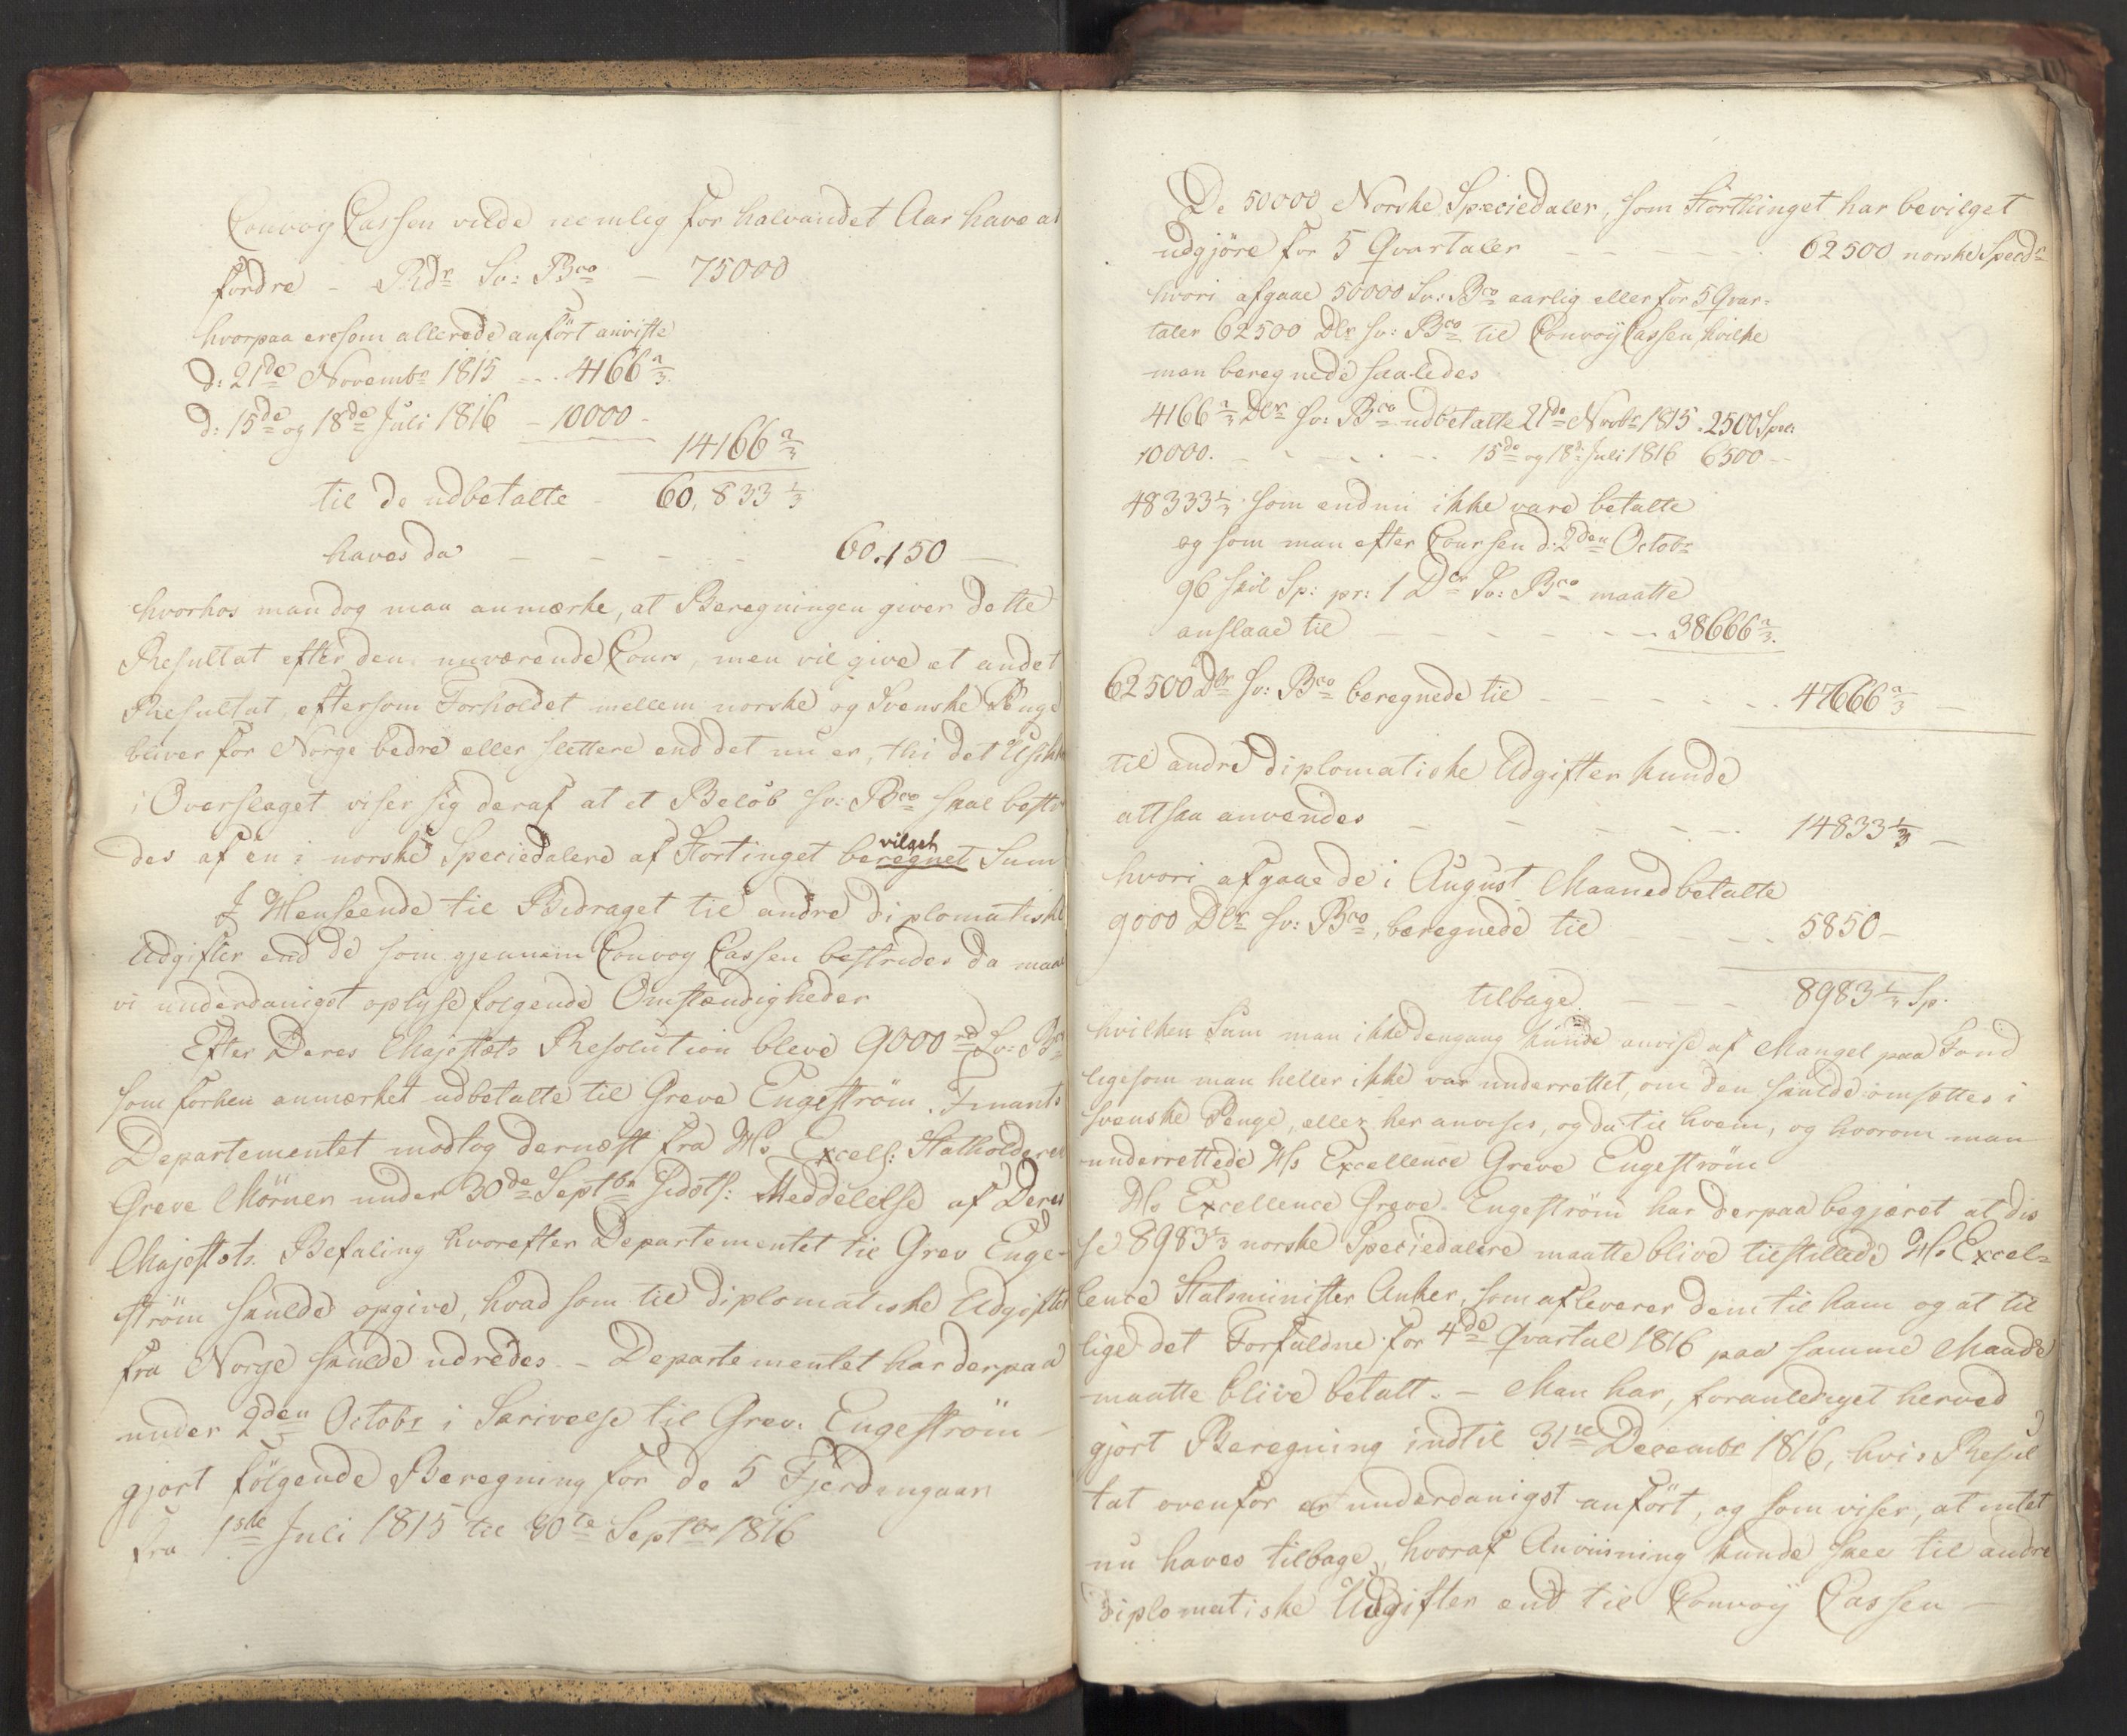 Convoy Cassen vilde nemlig for halvandet Aar have at
fordre - Rdr Sv: Bco - 75000
hvorpaa ere som allerede anført anviiste
d: 21de Novembr 1815 ... 4166 2/3
d: 15de og 18de Juli 1816 - 10000 -
14166 2/3
til de udbetalte - 60,833 1/3
haves da - - - - 60,150 -
hvorhos man dog maa anmærke, at Beregningen giver dette
Resultat efter den nuværende Cours, men vil give et andet
Resultat, eftersom Forholdet mellem norske og Svenske Penge
bliver for Norge bedre eller slettere end det nu er, thi det Usikre
i Overslaget viser sig deraf at et Beløb Sv: Bco skal bestri
des af en i norske Speciedalere af Stortinget beregnet vilget Sum
I Henseende til Bidraget til andre diplomatiske
Udgifter end de som gjennem Convoy Cassen bestrides da maae
vi underdanigst oplyse følgende Omstændigheder
Efter Deres Majestæts Resolution bleve 9000 rd Sv: Bco
som forhen anmærket udbetalte til Greve Engeström. Finants
Departementet modtog dernæst fra Hs Excell: Statholderen
Greve Mörner under 30de Septbr sidstl: Meddelelse af Deres
Majestæts Befaling hvorefter Departementet til Grev Enge-
ström skulde opgive, hvad som til diplomatiske Udgifter
fra Norge skulde udredes. - Departementet har derpaa
under 2den Octobr i Skrivelse til Grev: Engeström -
gjort følgende Beregning for de 5 Fjerdingaar
fra 1ste Juli 1815 til 30te Septbr 1816
De 50000 Norske Speciedaler, som Storthinget har bevilget
udgjøre for 5 Qvartaler - - - - - 62500 norske Specdr
hvori afgaae 50000 Sv: Bco aarlig eller for 5 Qvar-
taler 62500 Dlr Sv: Bco til Convoy Cassen, hvilke
man beregnede saaledes
4166 2/3 Dlr Sv: Bco udbetalte 21de Novbr 1815. 2500 Spec:
10000. - - - - - 15de og 18de Juli 1816 6500 -
48333 1/3 som endnu ikke vare betalte
og som man efter Coursen d: 2den Octobr
96 skil Sp: pr: 1 Dlr Sv: Bco maatte
anslaae til - - - - - - 38666 2/3.
62500 Dlr Sv: Bco beregnede til - - - - - 47666 2/3 -
til andre diplomatiske Udgifter kunde
altsaa anvendes - - - - - 14833 1/3 -
hvori afgaae de i August Maaned betalte
9000 Dlr Sv: Bco, beregnede til - - - 5850 -
tilbage - - - 8983 1/3 Sp.
hvilken Sum man ikke dengang kunde anvise af Mangel paa Fond
ligesom man heller ikke var underrettet, om den skulde omsættes i
Svenske Penge, eller her anvises, og da til hvem, og hvorom man
underrettede Hs Excellence Greve Engeström
Hs Excellence Greve Engeström har derpaa begjæret at dis
se 8983 1/3 norske Speciedalere maatte blive tilstillede Hs Excel-
lence Statsminister Anker, som afleverer dem til ham og at til
lige det Forfaldne for 4de Qvartal 1816 paa samme Maade
maatte blive betalt. - Man har, foranlediget herved
gjort Beregning indtil 31te Decembr 1816, hvis Resul
tat ovenfor er underdanigst anført, og som viser, at intet
nu haves tilbage, hvoraf Anviisning kunde skee til andre
diplomatiske Udgifter end til Convoy Cassen -